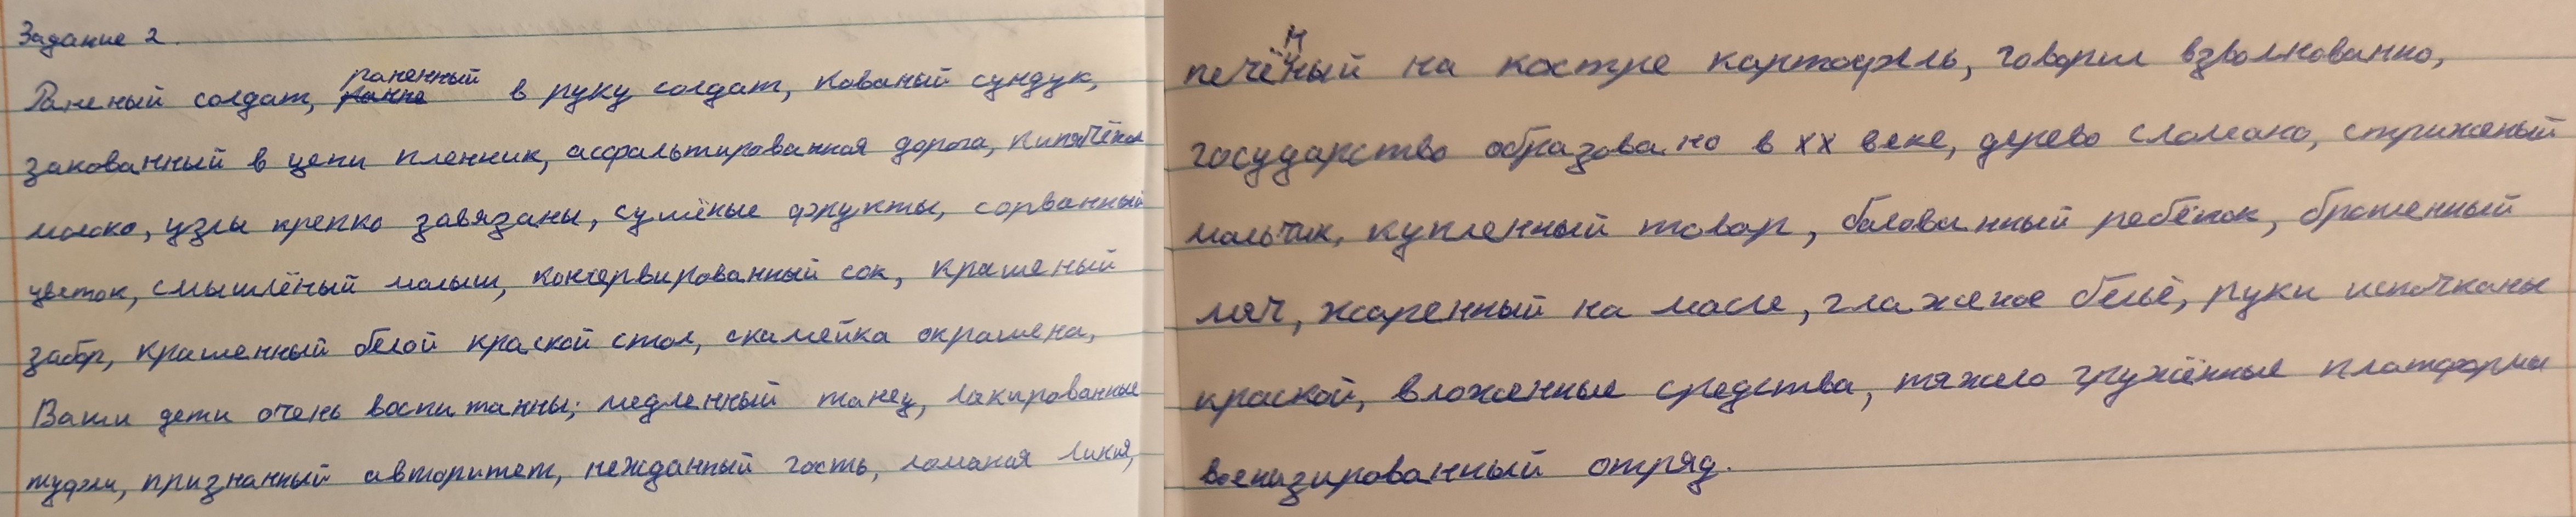 Задание 2.
Раненый солдат, раненный в руку солдат, кованый сундук,
закованный в цепи пленник, асфальтированная дорога, кипячёное
молоко, узлы крепко завязаны, сушёные фрукты, сорванный
цветок, смышлёный малыш, консервированный сок, крашеный
забор, крашенный белой краской стол, скамейка окрашена,
Ваши дети очень воспитанны; медленный танец, лакированные
туфли, признанный авторитет, нежданный гость, ломаная линия,
печённый на костре картофель, говорил взволнованно,
государство образовано в XX веке, дерево сломано, стриженый
мальчик, купленный товар, балованный ребёнок, брошенный
мяч, жаренный на масле, глаженое бельё, руки испачканы
краской, вложенные средства, тяжело гружённые платформы
военизированный отряд.